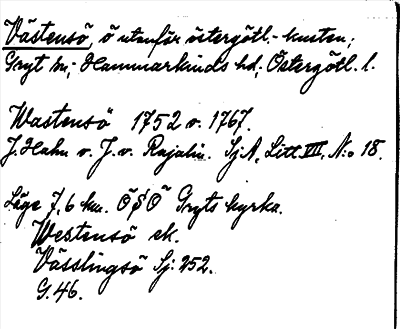 Västensö, ö utanför östergötl.-kusten;
Gryt sn; Hammarkinds hd; Östergötl. l.
Wastensö 1752 o. 1767.
J. Hahn o. J. v. Rajalin. SjA, Litt. VII, N:o 18.
Läge 7,6 km. ÖSÖ Gryts kyrka.
Westensö ek.
Vässlingsö Sj: 252.
G. 46.